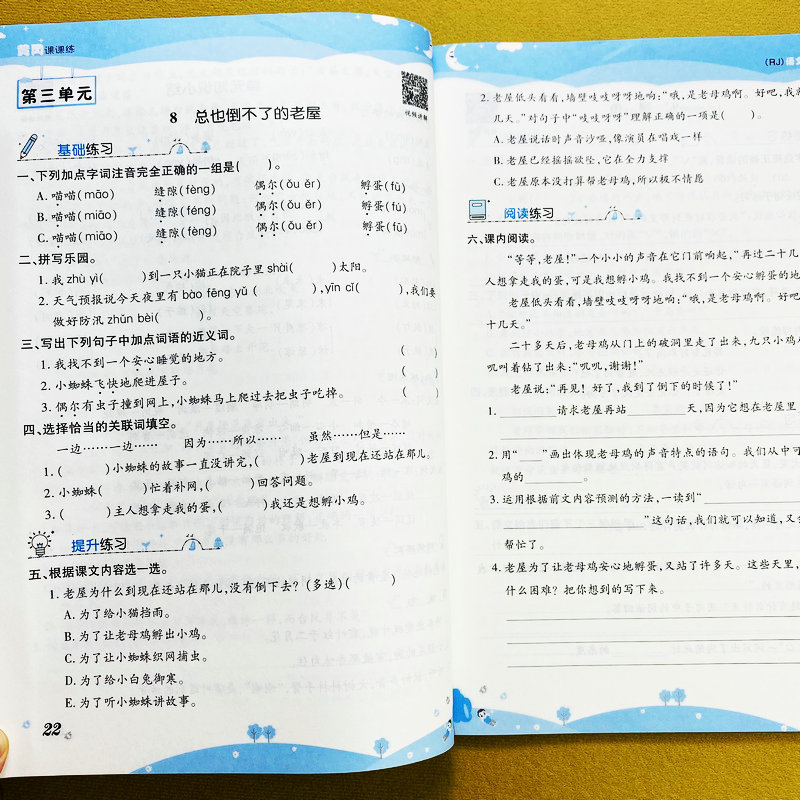 黄冈课课练
第三单元
8 总也倒不了的老屋
视频讲解
基础练习
一、下列加点字词注音完全正确的一组是( )。
A. 喵喵(māo) 缝隙(fèng) 偶尔(ǒu ěr) 孵蛋(fū)
B. 喵喵(miāo) 缝隙(féng) 偶尔(ǒu ěr) 孵蛋(fú)
C. 喵喵(miāo) 缝隙(fèng) 偶尔(ǒu ěr) 孵蛋(fū)
二、拼写乐园。
1. 我 zhù yì( )到一只小猫正在院子里 shài( )太阳。
2. 天气预报说今天夜里有 bào fēng yǔ( ),yīn cǐ( ),我们要
做好防汛 zhǔn bèi( )。
三、写出下列句子中加点词语的近义词。
1. 我找不到一个安心睡觉的地方。 ( )
2. 小蜘蛛飞快地爬进屋子。 ( )
3. 偶尔有虫子撞到网上,小蜘蛛马上爬过去把虫子吃掉。 ( )
四、选择恰当的关联词填空。
一边……一边…… 因为……所以…… 虽然……但是……
1. ( )小蜘蛛的故事一直没讲完,( )老屋到现在还站在那儿。
2. 小蜘蛛( )忙着补网,( )回答问题。
3. ( )主人想拿走我的蛋,( )我还是想孵小鸡。
提升练习
五、根据课文内容选一选。
1. 老屋为什么到现在还站在那儿,没有倒下去?(多选)( )
A. 为了给小猫挡雨。
B. 为了让老母鸡孵出小鸡。
C. 为了让小蜘蛛织网捕虫。
D. 为了给小白兔御寒。
E. 为了听小蜘蛛讲故事。
22
(RJ)语文
2. 老屋低头看看,墙壁吱吱呀呀地响:“哦,是老母鸡啊。好吧,我就
几天。”对句子中“吱吱呀呀”理解正确的一项是( )。
A. 老屋说话时声音沙哑,像演员在唱戏一样
B. 老屋已经摇摇欲坠,它在全力支撑
C. 老屋原本没打算帮老母鸡,所以极不情愿
阅读练习
六、课内阅读。
“等等,老屋!”一个小小的声音在它门前响起,“再过二十几
人想拿走我的蛋,可是我想孵小鸡。我找不到一个安心孵蛋的地
老屋低头看看,墙壁吱吱呀呀地响:“哦,是老母鸡啊。好吧
十几天。”
二十多天后,老母鸡从门上的破洞里走了出来,九只小鸡从
叽叫着钻了出来:“叽叽,谢谢!”
老屋说:“再见!好了,我到了倒下的时候了!”
1. ________请求老屋再站________天,因为它想在老屋里
2. 用“____”画出体现老母鸡的声音特点的语句。我们从中可
鸡的________。
3. 运用根据前文内容预测的方法,一读到“________
________”这句话,我们就可以知道,又
帮忙了。
4. 老屋为了让老母鸡安心地孵蛋,又站了许多天。这些天里,
什么困难?把你想到的写下来。